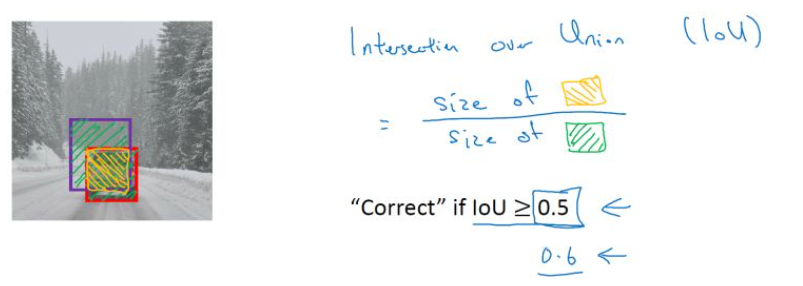 Intersection over Union (IoU)
= size of
size of
"Correct" if IoU ≥ 0.5 ←
0.6 ←